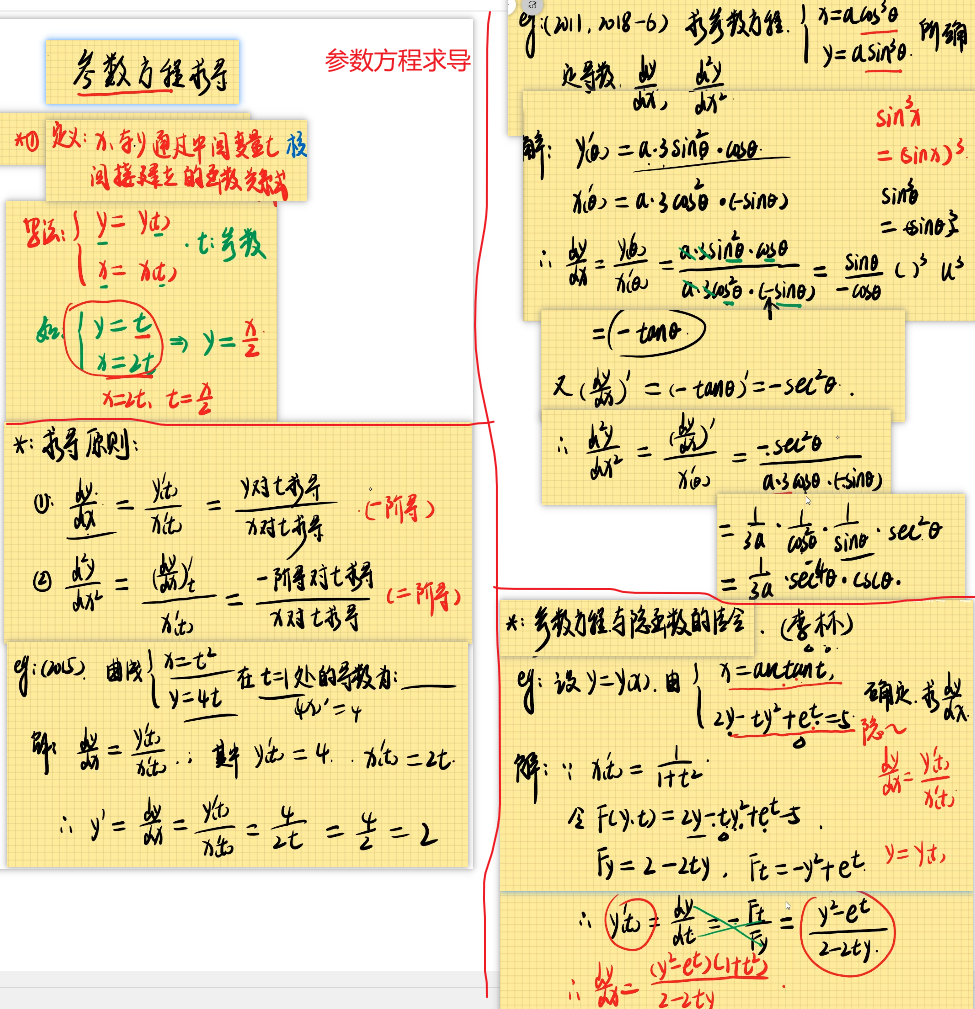 参数方程求导
参数方程求导
*① 定义: x、与y通过中间变量t
间接建立的函数关系式
写法: { y = y(t)
x = x(t)
· t: 参数
如: { y = t
x = 2t
⇒ y = x/2
x=2t、t = x/2
*: 求导原则:
①: dy/dx = y'(t)/x'(t) = y对t求导/x对t求导 (一阶导)
② d²y/dx² = (dy/dx)'t/x'(t) = 一阶导对t求导/x对t求导 (二阶导)
eg: (2015). 曲线 { x = t²
y = 4t
在t=1处的导数为: ____
4x' = 4
解: dy/dx = y'(t)/x'(t) ∴; 其中 y'(t) = 4. x'(t) = 2t.
∴ y' = dy/dx = y'(t)/x'(t) = 4/2t = 4/2 = 2
eg: (2011, 2018-6) 求参数方程. { x = acos³θ
y = asin³θ.
所确
定导数. dy/dx, d²y/dx².
解: y'(θ) = a·3sin²θ·cosθ
x'(θ) = a·3cos²θ·(-sinθ)
sin³x
= (sinx)³.
sin³θ
= (sinθ)³
∴ dy/dx = y'(θ)/x'(θ) = a·3sin²θ·cosθ/a·3cos²θ·(-sinθ) = sinθ/-cosθ ( )³ u³
= -tanθ
又 (dy/dx)' = (-tanθ)' = -sec²θ.
∴ d²y/dx² = (dy/dx)'/x'(θ) = -sec²θ/a·3cos²θ·(-sinθ)
= 1/3a · 1/cos²θ · 1/sinθ · sec²θ
= 1/3a · sec⁴θ · cscθ.
*: 参数方程与隐函数的结合. (李林)
eg: 设 y=y(x). 由 { x = arctant,
2y - ty² + e^t = 5
确定. 求 dy/dx.
隐~
解: ∵ x'(t) = 1/1+t².
dy/dx = y'(t)/x'(t)
令 F(y.t) = 2y - ty² + e^t - 5.
Fy = 2 - 2ty. Ft = -y² + e^t.
y = y(t)
∴ y'(t) = dy/dt = -Ft/Fy = y²-e^t/2-2ty.
∴ dy/dx = (y²-e^t)(1+t²)/2-2ty.